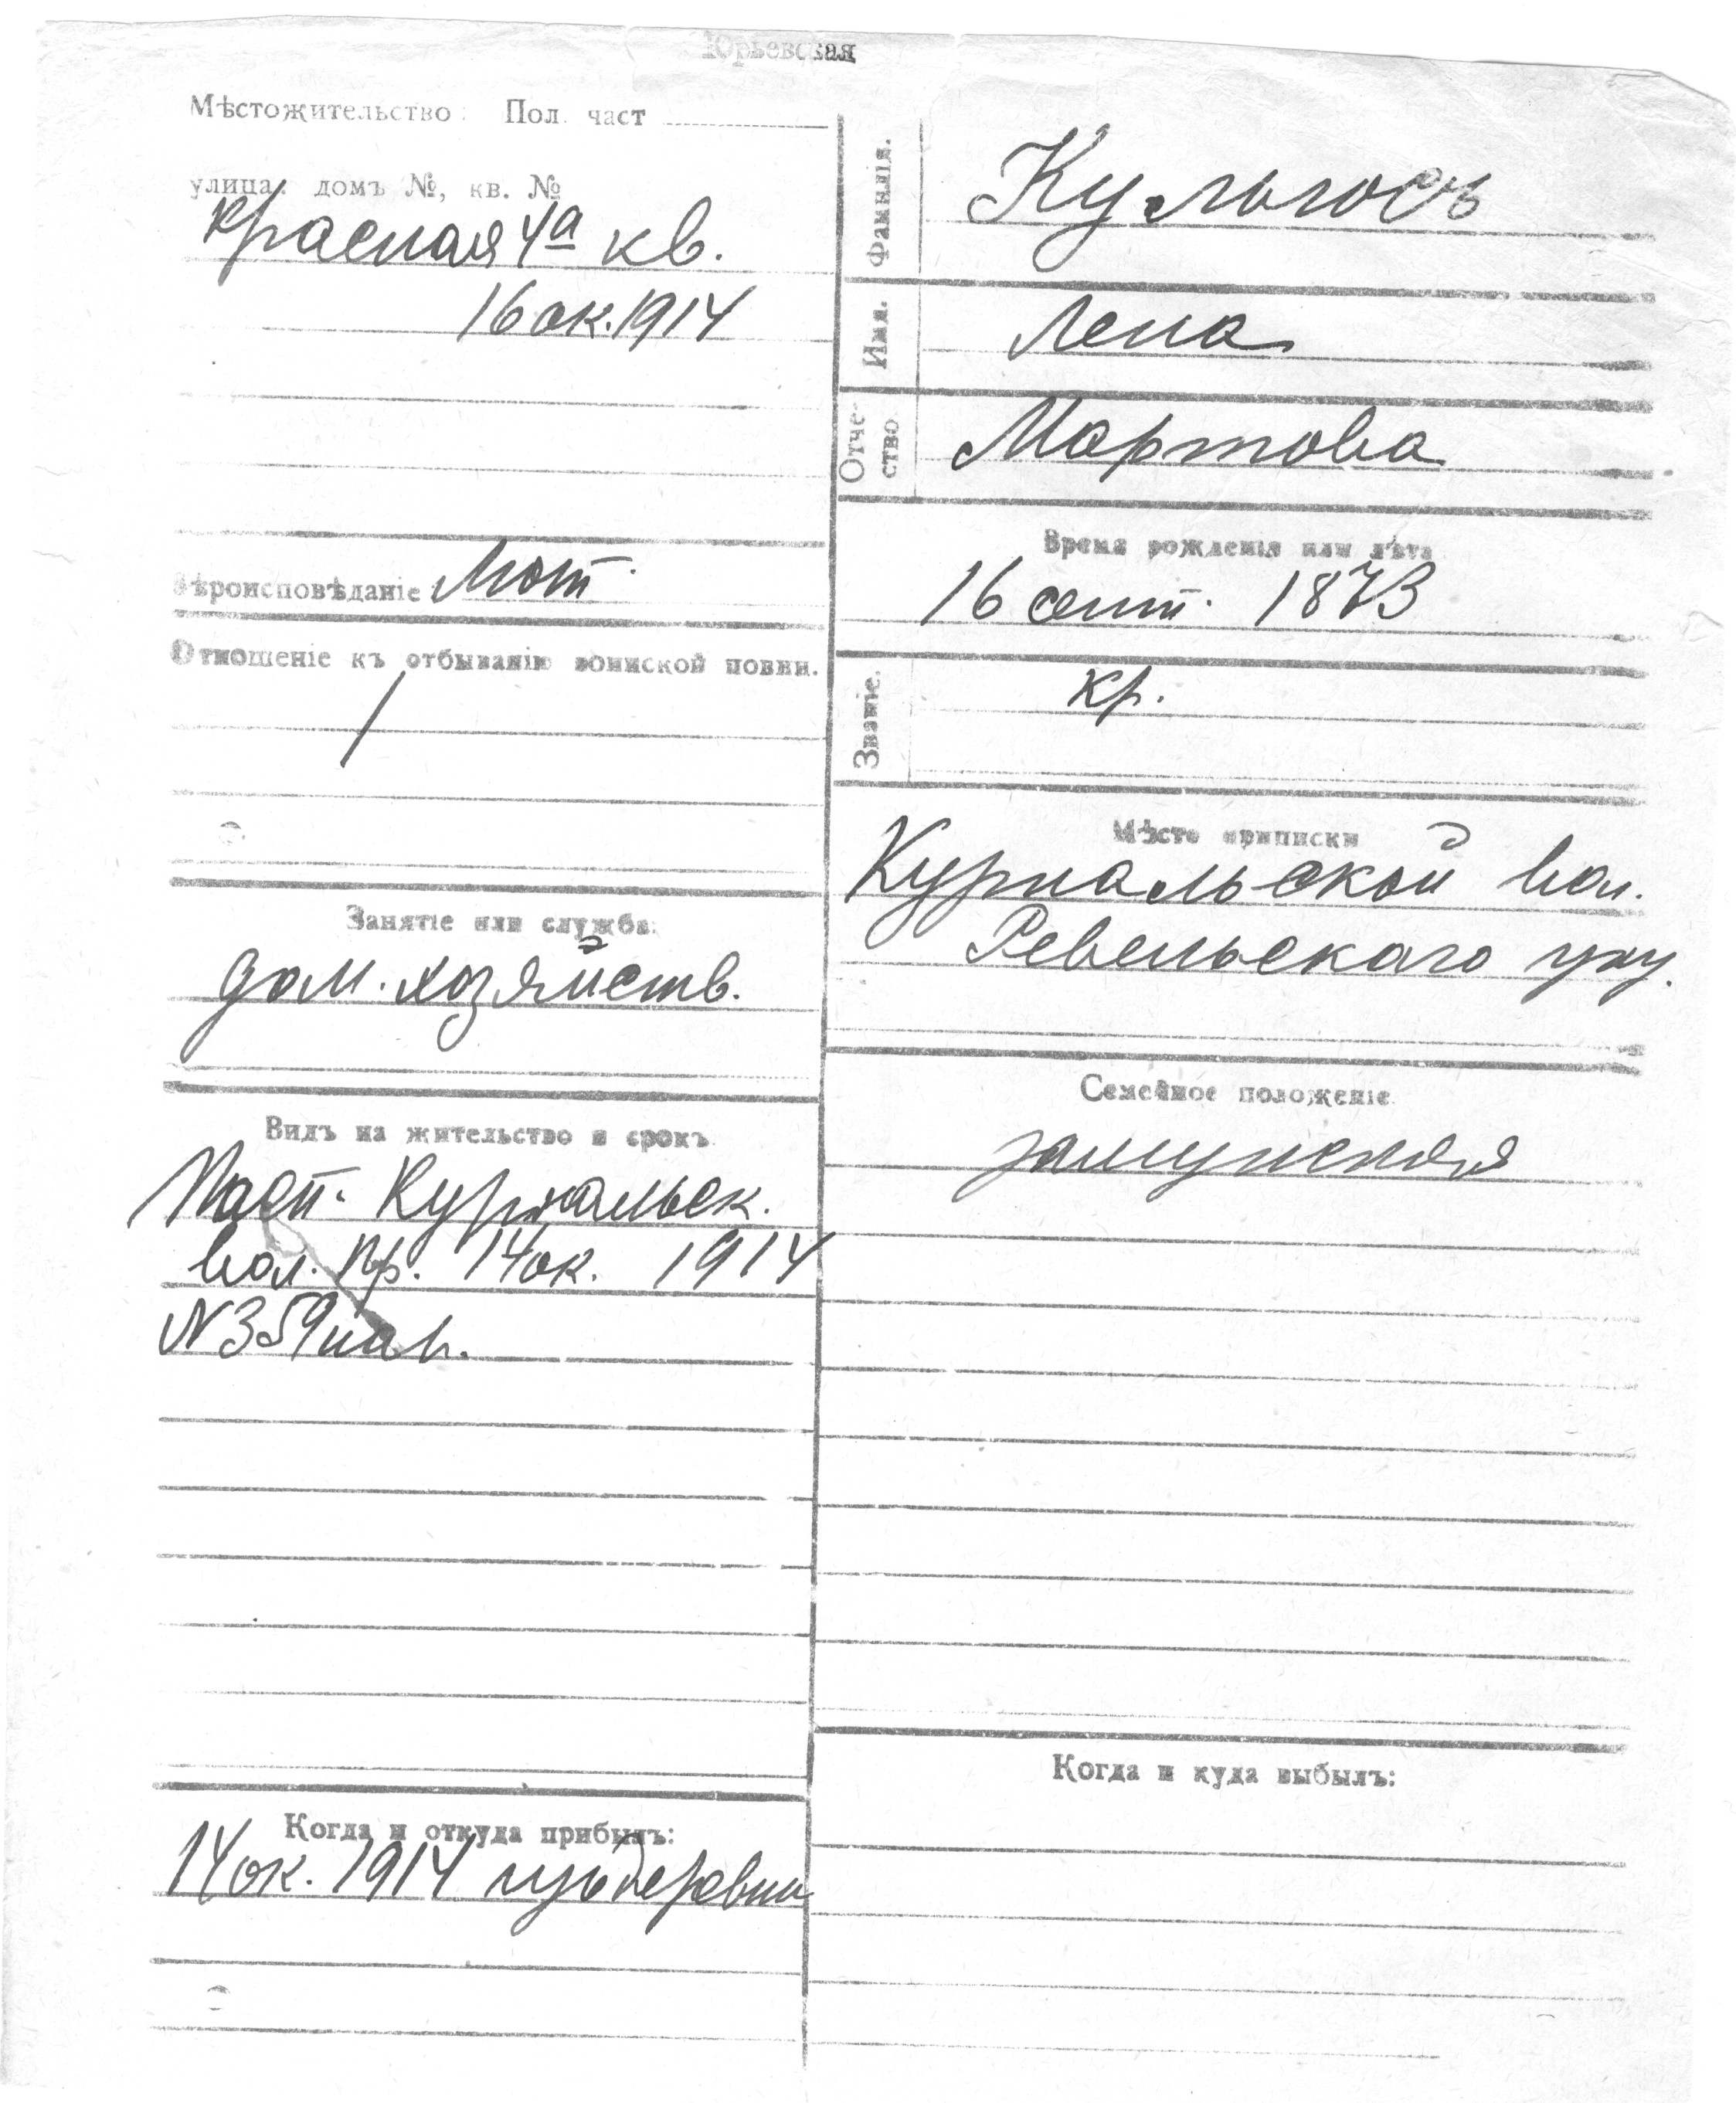 Юрьевская
Мѣстожительство: Пол. част
улица: домъ №, кв. №
Красная 4а кв.
16 ок. 1914
Вѣроисповѣданіе Лют.
Отношеніе къ отбыванію воинской повин.
Занятіе или служба:
дом. хозяйств.
Видъ на жительство и срокъ.
Пасп. Курнальск.
вол. пр. 14 ок. 1914
N 359
Когда и откуда прибылъ:
14 ок. 1914 изъ деревни
Фамилія.
Кульгосъ
Имя.
Лена
Отче-
ство
Мартова
Время рожденія или лѣта
16 сент. 1873
Званіе.
кр.
Мѣсто приписки
Курнальской вол.
Ревельскаго у.
Семейное положеніе.
замужняя
Когда и куда выбылъ: